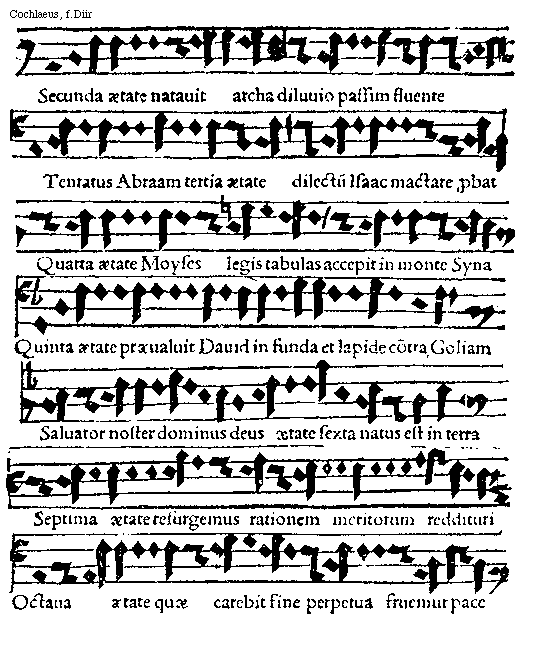 Cochlaeus, f.Diir
Secunda ætate natauit archa diluuio paſſim fluente
Tentatus Abraam tertia ætate dilectũ Iſaac mactare ꝓbat
Quarta ætate Moyſes legis tabulas accepit in monte Syna
Quinta ætate præualuit Dauid in funda et lapide cõtra Goliam
Saluator noſter dominus deus ætate ſexta natus eſt in terra
Septima ætate reſurgemus rationem meritorum reddituri
Octaua ætate quæ carebit fine perpetua fruemur pace